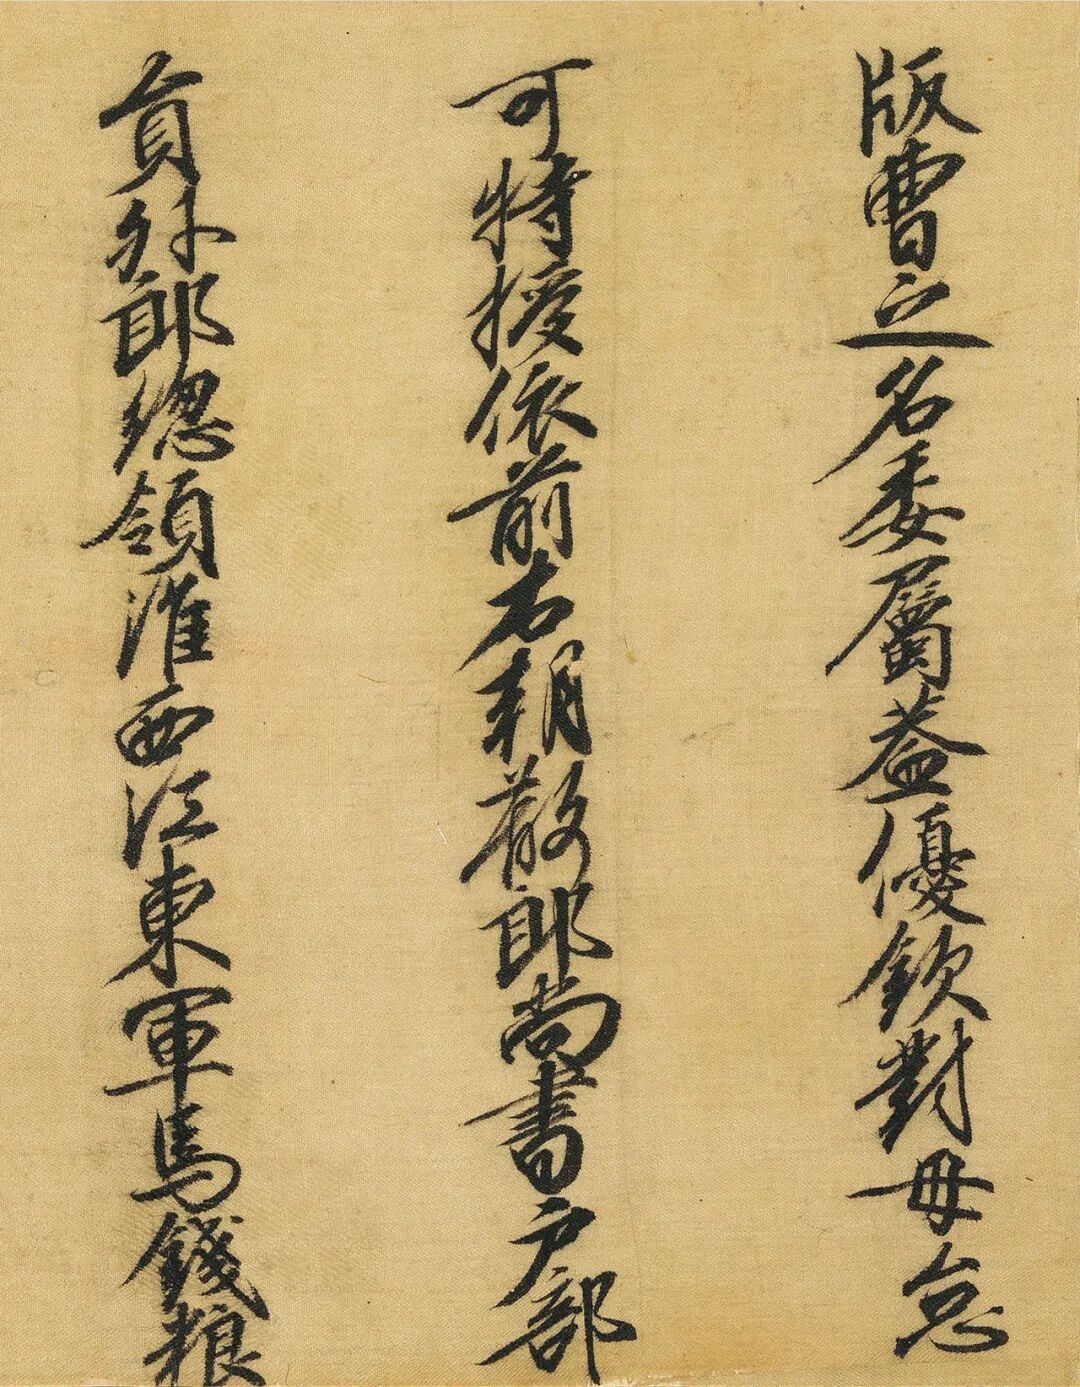 版曹之名委屬葢優欽對毋怠
可特授依前右朝散郎尚書户部
員外郎緫領淮西江東軍馬錢粮